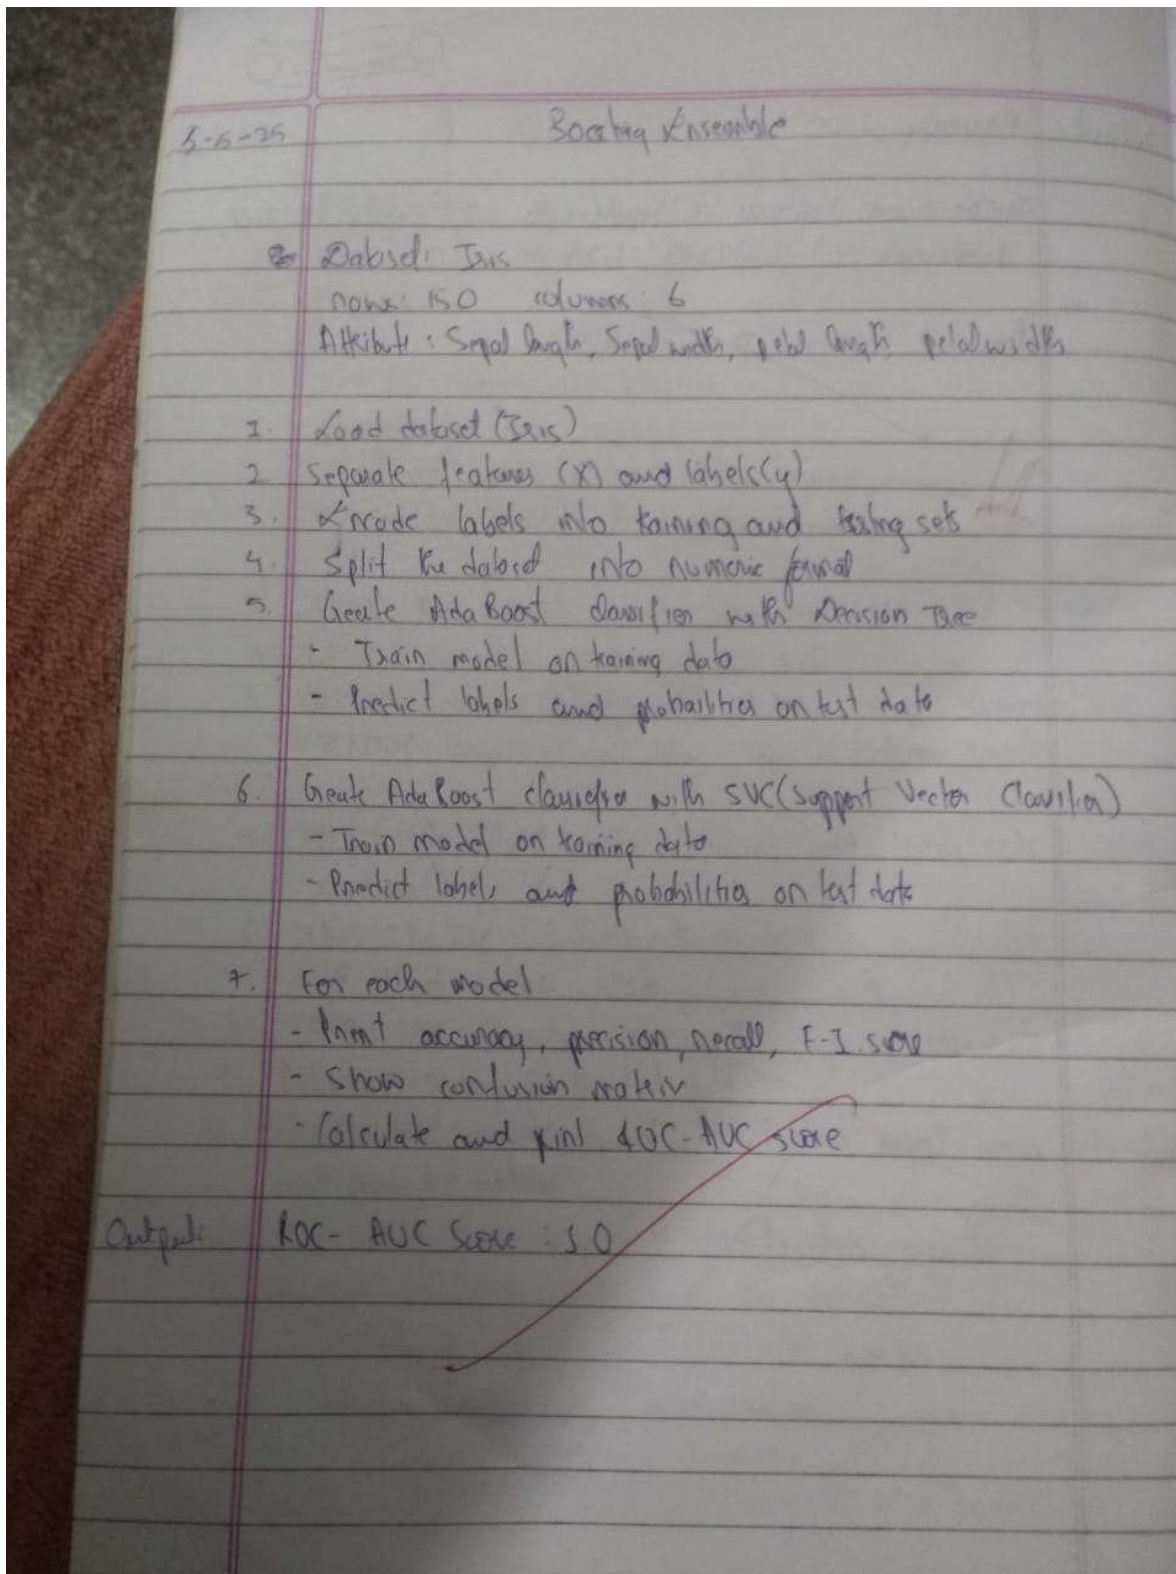 5-6-25 Boosting Ensemble
Dataset: Iris
rows: 150 columns: 6
Attribute: Sepal length, Sepal width, petal length, petal width
1. Load dataset (Iris)
2. Separate features (X) and labels (y)
3. Encode labels into training and testing sets
4. Split the dataset into numeric format
5. Create AdaBoost classifier with Decision Tree
- Train model on training data
- Predict labels and probailities on test data
6. Create AdaBoost classifier with SVC (Support Vector Classifier)
- Train model on training data
- Predict labels and probabilities on test data
7. For each model
- Print accuracy, precision, recall, F-1 score
- Show confusion matrix
- Calculate and print ROC-AUC score
Output: ROC-AUC Score: 1.0